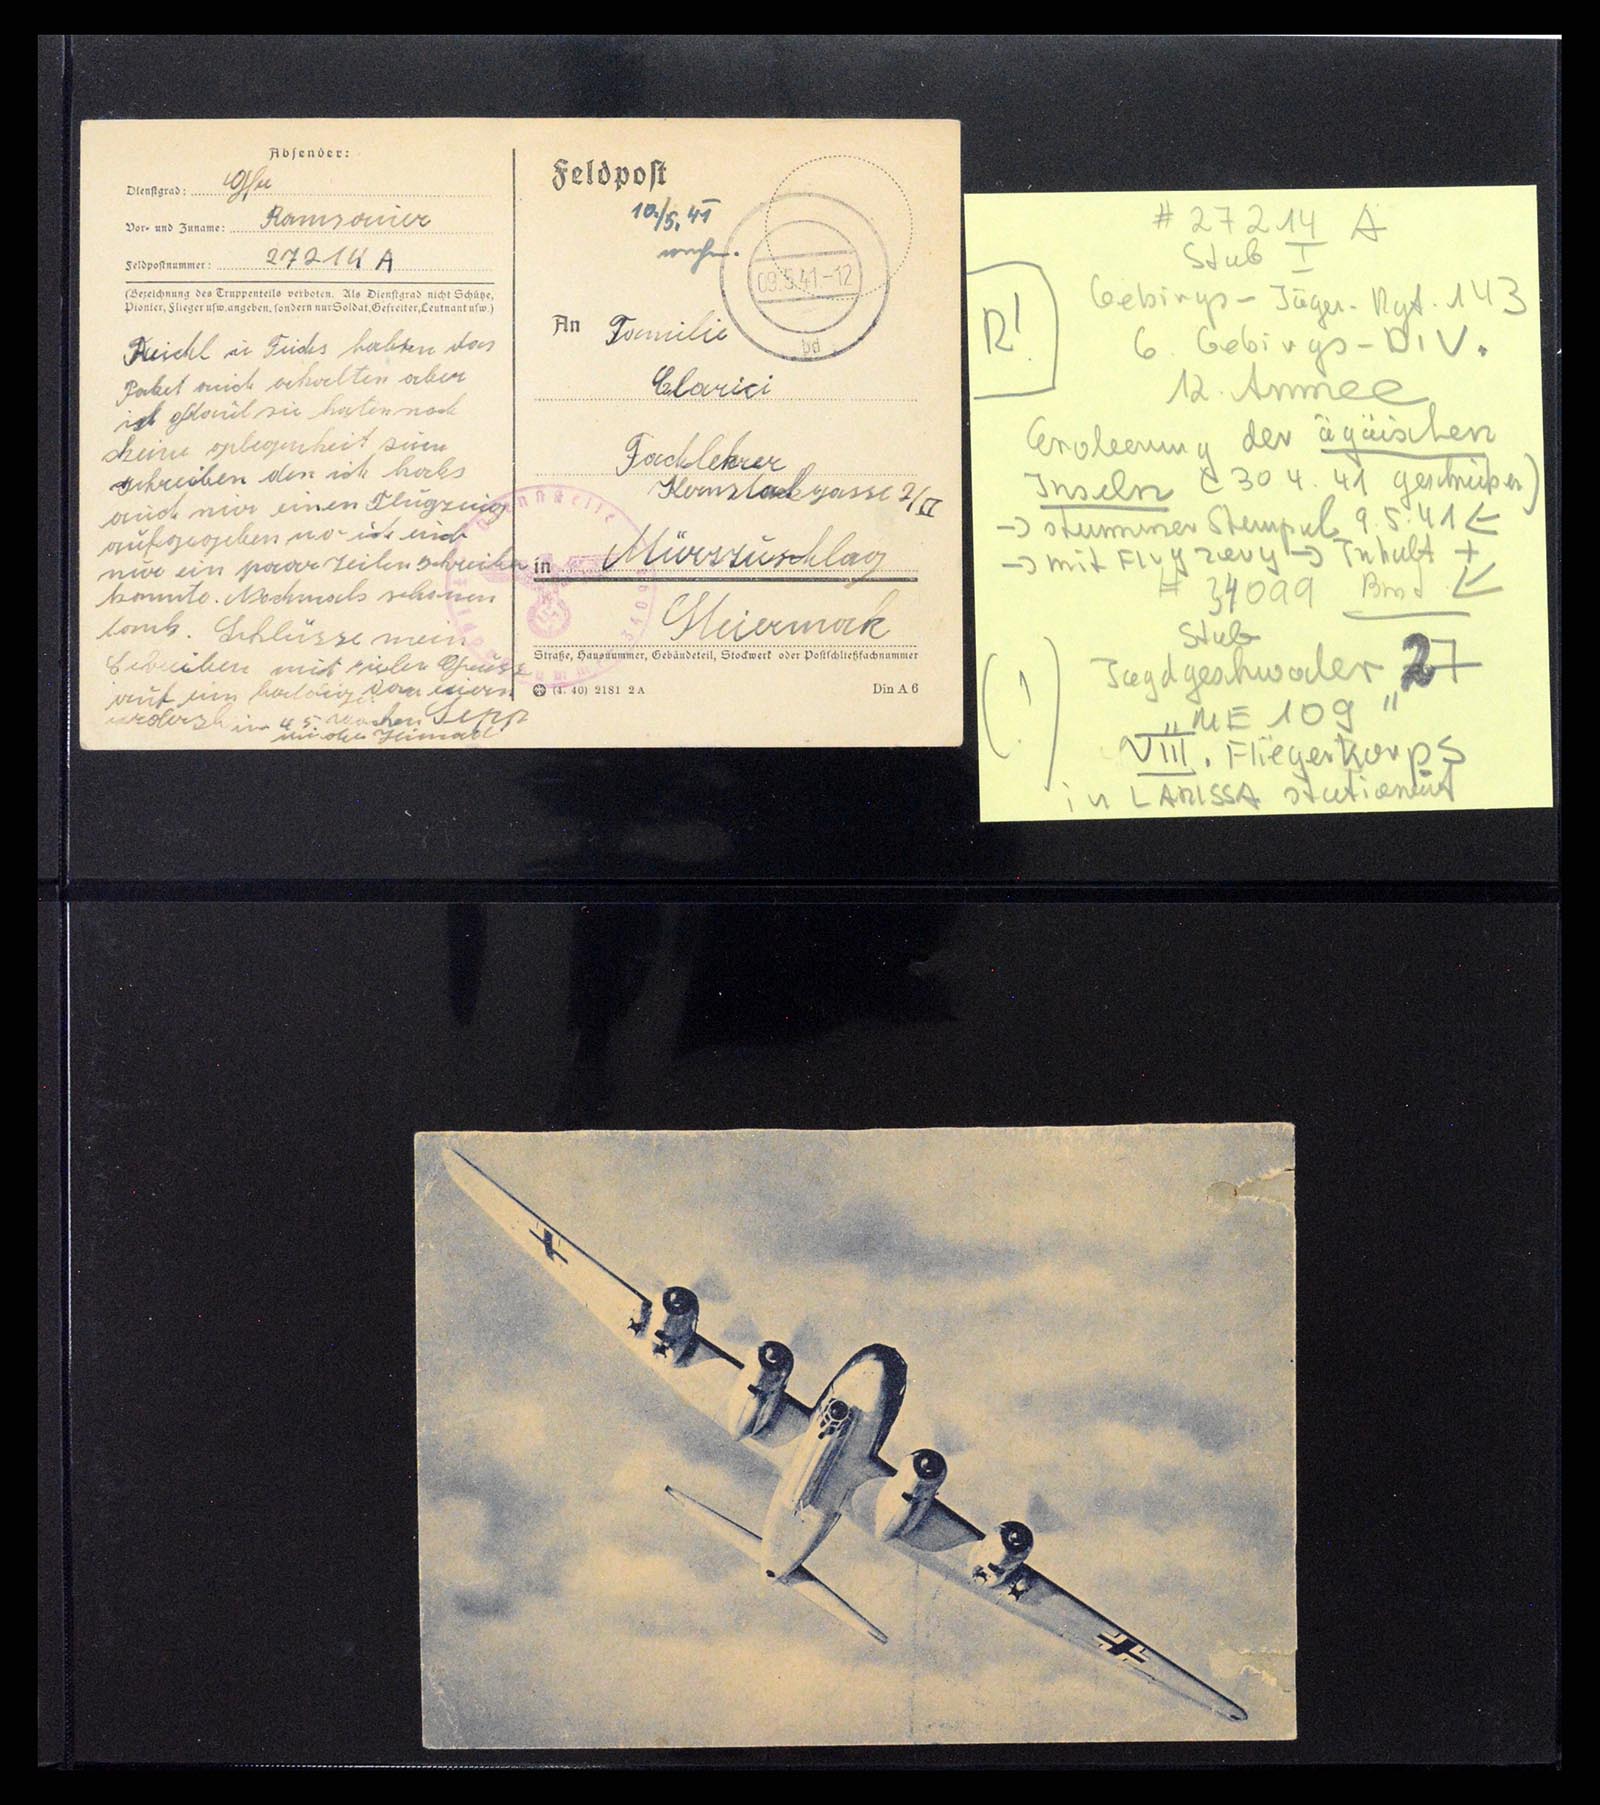 Absender:
Dienstgrad: Gfr
Vor- und Zuname: Ramsauer
Feldpostnummer: 27214 A
(Bezeichnung des Truppenteils verboten. Als Dienstgrad nicht Schütze,
Pionier, Flieger usw. angeben, sondern nur Soldat, Gefreiter, Leutnant usw.)
haben das
Paket auch erhalten aber
ich glaub sie haten noch
keine gelegenheit zum
schreiben den ich habs
auch nur einen Flugzeug
aufgegeben wo ich euch
nur ein paar Zeilen schreiben
konnte. Nochmals schönen
Schlüsse mein
Schreiben mit vielen Grüsse
auf ein
in 4 5 wochen Sepp
in der Heimad
Feldpost
10./5. 41
09.5.41.-12
bd
An Familie
Clarici
Fachlehrer
gasse 2/II
in Mürzzuschlag
Steiermark
Straße, Hausnummer, Gebäudeteil, Stockwerk oder Postschließfachnummer
(4. 40) 2181 2 A
Din A 6
# 27214 A
Stab I
R!
Gebirgs-Jäger-Rgt. 143
6. Gebirgs-DIV.
12. Armee
Eroberung der ägäischen
Inseln (30 4. 41 geschrieben)
-> stummer Stempel 9.5.41 <-
-> mit Flugzeug -> Inhalt +
# 34099
Stab
(!)
Jagdgeschwader 27
„ME 109"
VIII. Fliegerkorps
in LARISSA stationiert